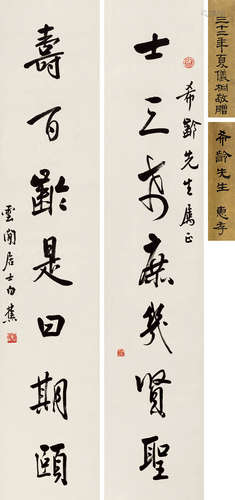 三十二年夏儀桐敬贈
希齡先生 惠存
希齡先生屬正
士三希庶幾賢聖
壽百齡是曰期頤
雲間居士白蕉